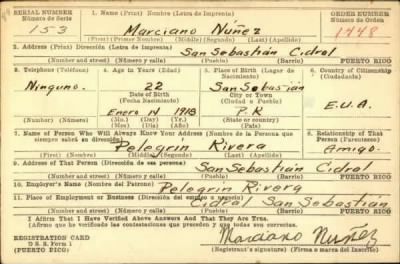 SERIAL NUMBER
Número de Serie
1. NAME (Print) Nombre (Letra de Imprenta)
ORDER NUMBER
Número de Orden
153
Marciano Núñez
1448
(First) Primer Nombre (Middle) (Segundo) (Last) (Apellido)
2. Address (Print) Dirección (Letra de Imprenta)
San Sebastián Cidral
(Number and street) (Número y calle) (Town) (Pueblo) (Barrio) PUERTO RICO
3. Telephone (Teléfono)
4. Age in Years (Edad)
5. Place of Birth (Lugar de Nacimiento)
6. Country of Citizenship (Ciudadanía)
Ninguno.
22
San Sebastián
Date of Birth
Fecha de Nacimiento
City or Town
(Ciudad o Pueblo)
Enero 1 1918
P.R
E.U.A.
(Mo.) (Day) (Yr.)
(Mes) (Día) (Año)
(State or country)
7. Name of Person Who Will Always Know Your Address (Nombre de la Persona que siempre sabrá su dirección)
8. Relationship of That Person (Parentesco)
Pelegrin Rivera
Amigo.
(First) (Primero) (Middle) (Segundo) (Last) (Apellido)
9. Address of That Person (Dirección de esa persona)
San Sebastián Cidral
(Number and street) (Número y calle) (Town) (Pueblo) (Barrio) PUERTO RICO
10. Employer's Name (Nombre del Patrono)
Pelegrin Rivera
11. Place of Employment or Business (Dirección del empleo o negocio)
Cidral San Sebastián
(Number and street) (Número y calle) (Town) (Pueblo) (Barrio) PUERTO RICO
I Affirm That I Have Verified Above Answers And That They Are True.
(Afirmo que he verificado las contestaciones que preceden y que son ciertas.)
REGISTRATION CARD
D S S. Form 1
(PUERTO RICO)
Marciano Núñez
(Registrant's signature) (Firma o marca del inscrito)